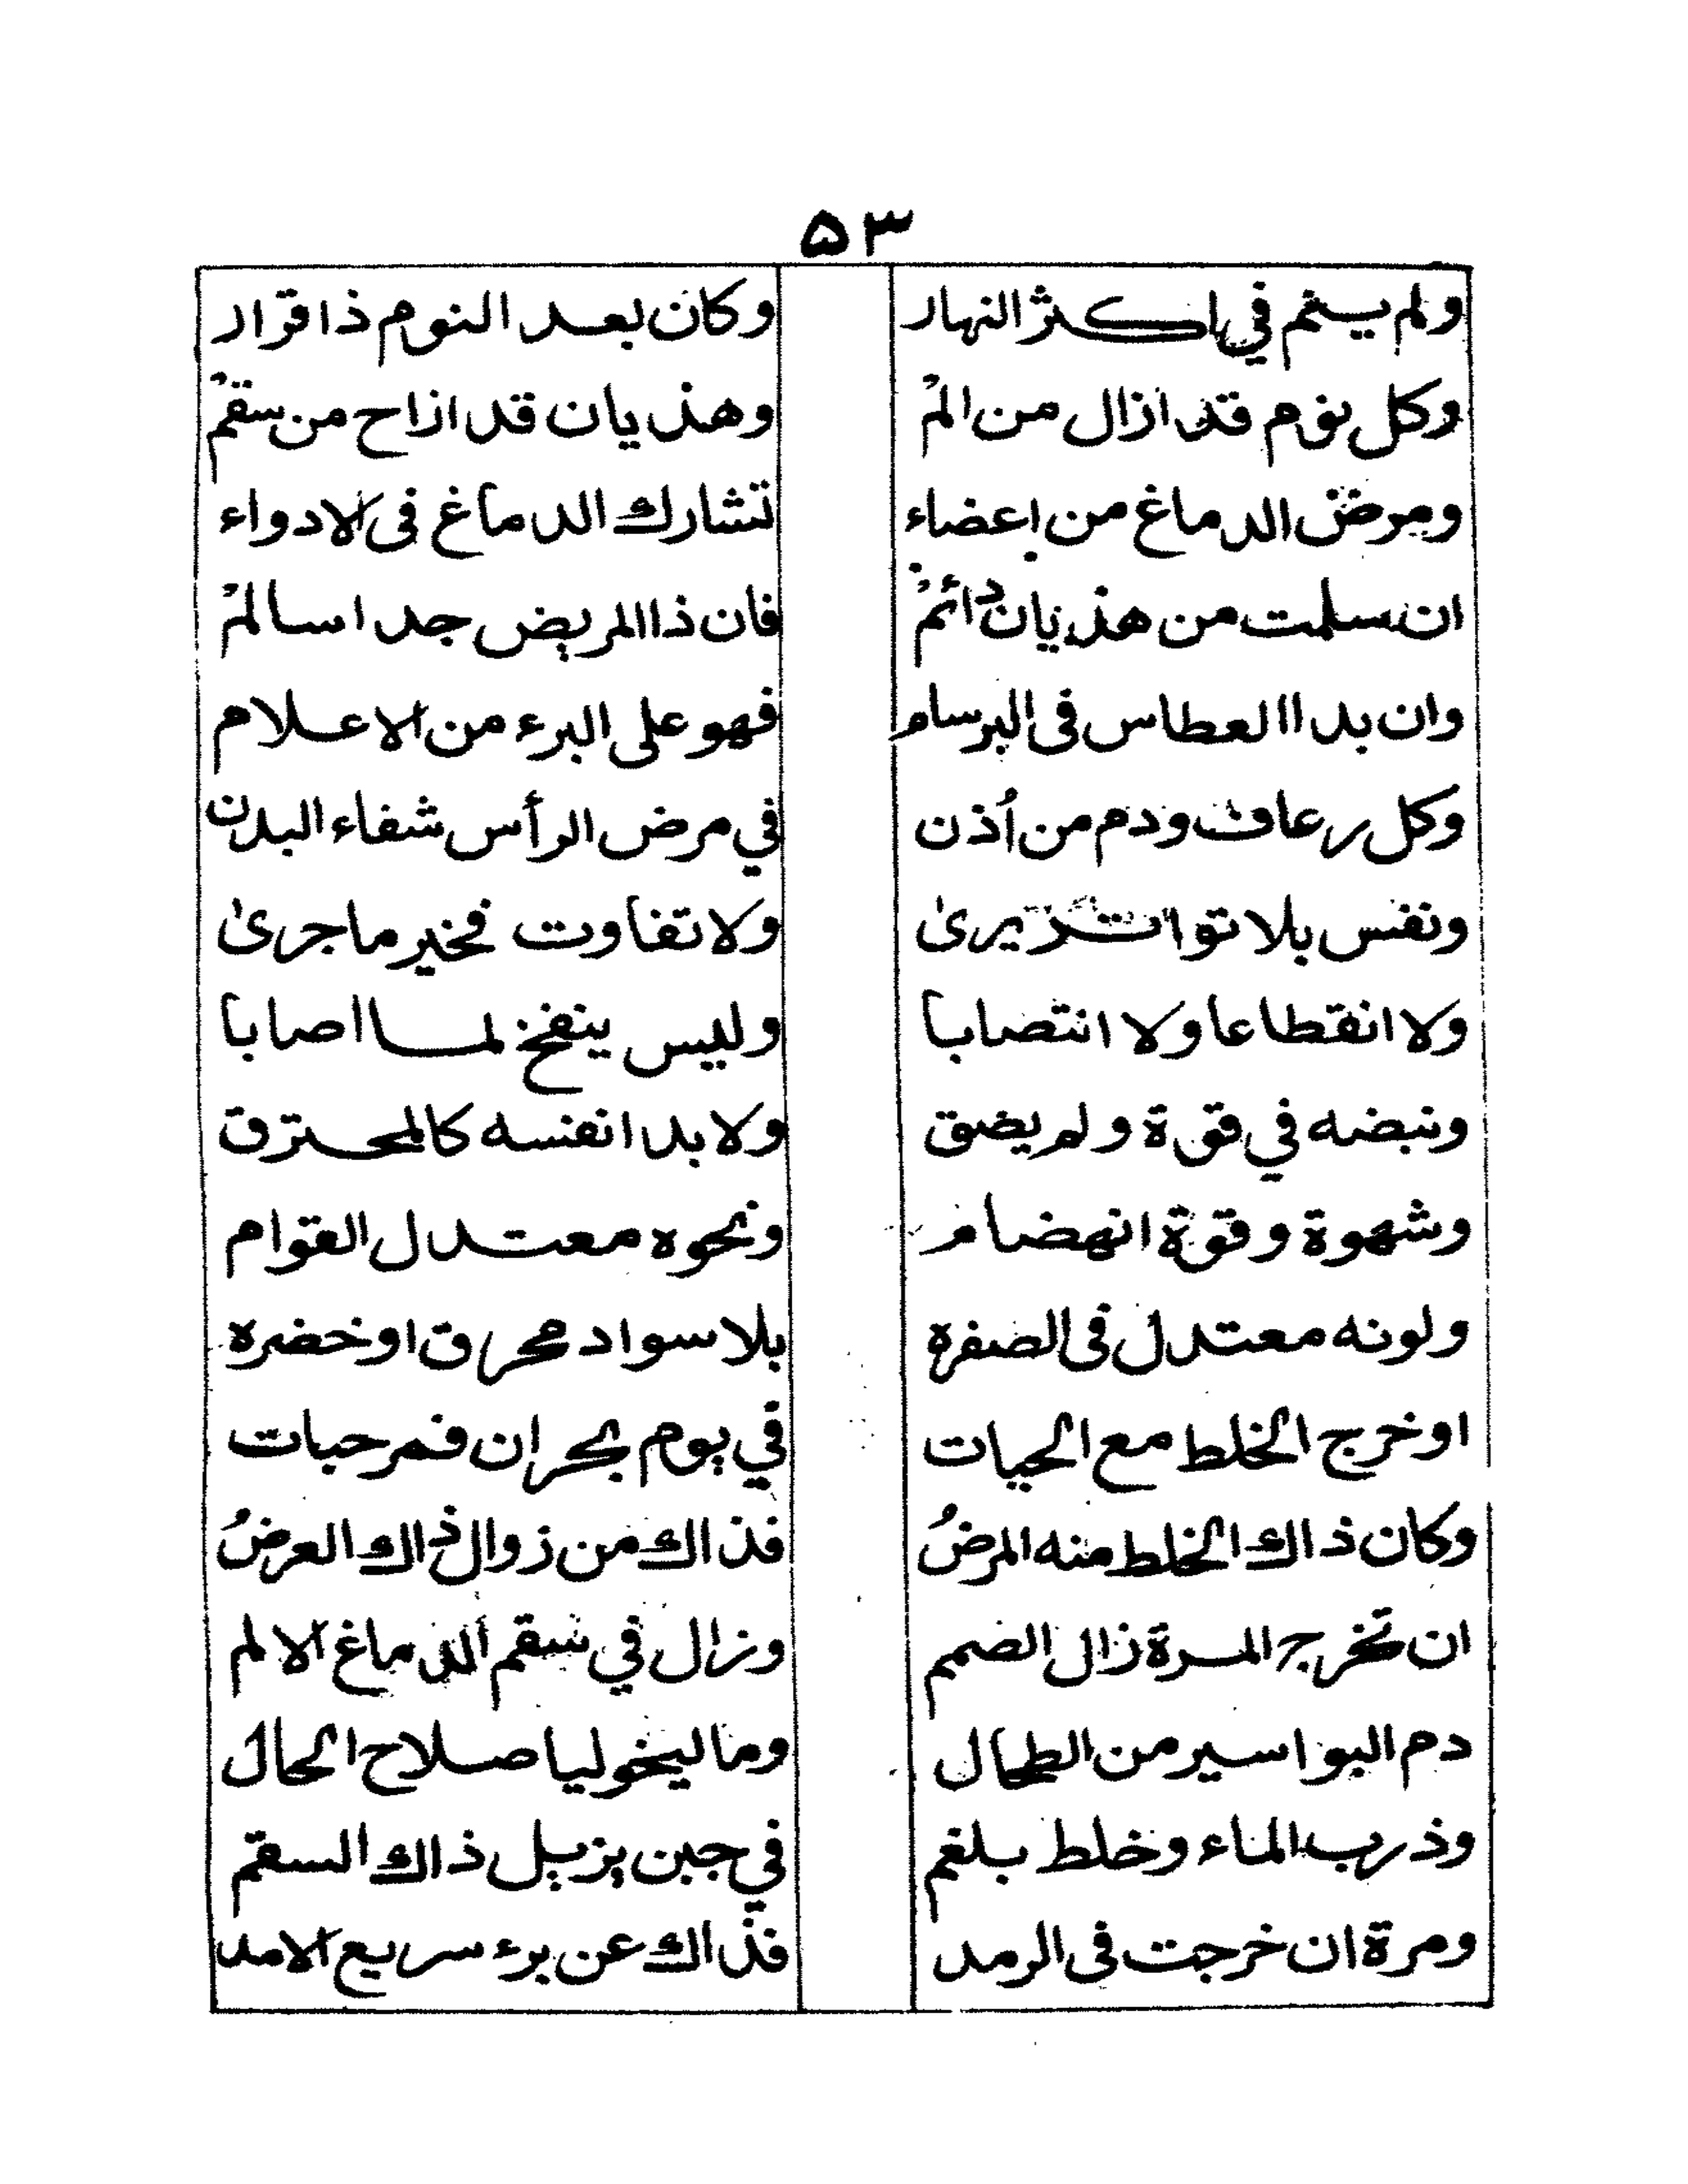 ۵۳
ولم ينم في اكثر النهار وكان بعد النوم ذا قرار
وكل نوم قد ازال من المْ وهذيان قد ازاح من سقمْ
ومرض الدماغ من اعضاء تشارك الدماغ فى الادواء
ان سلمت من هذيان دائمْ فان ذا المريض جدا سالمْ
وان بدا العطاس فى البرسام فهو على البرء من الاعلام
وكل رعاف ودم من أُذن في مرض الرأس شفاء البدن
ونفس بلا تواتر يرىٰ ولا تفاوت فخير ما جرىٰ
ولا انقطاعا ولا انتصابا وليس ينفخ لما اصابا
ونبضه في قوة ولم يضق ولا بدا نفسه كالمحترق
وشهوة وقوة انهضام ونحوه معتدل القوام
ولونه معتدل فى الصفره بلا سواد محرق او خضره
او خرج الخلط مع الحيات في يوم بحران فمرحبات
وكان ذاك الخلط منه المرضُ فذاك من زوال ذاك العرضُ
ان تخرج المرة زال الصمم وزال في سقم الدماغ الالم
دم البواسير من الطحال وماليخوليا صلاح الحال
وذرب الماء وخلط بلغم في جبن يزيل ذاك السقم
ومرة ان خرجت فى الرمد فذاك عن برء سريع الامد